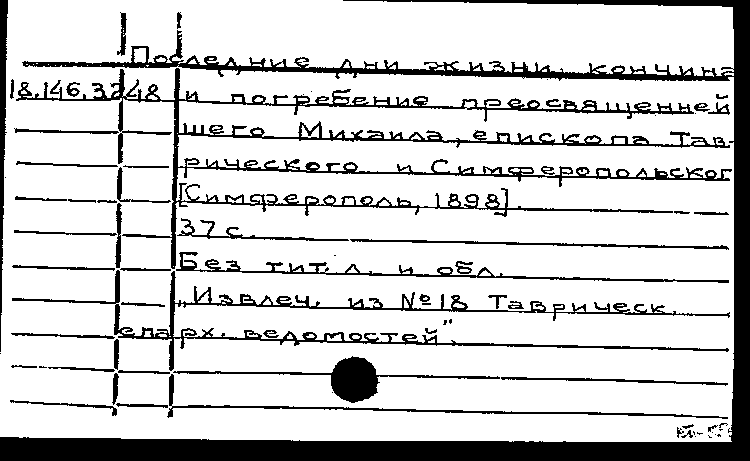 Последние дни жизни, кончина
18.146.3248 и погребение преосвященней
шего Михаила, епископа Тав-
рического и Симферопольског
[Симферополь, 1898].
37 с.
Без тит. л. и обл.
„Извлеч. из №18 Таврическ.
епарх. ведомостей".